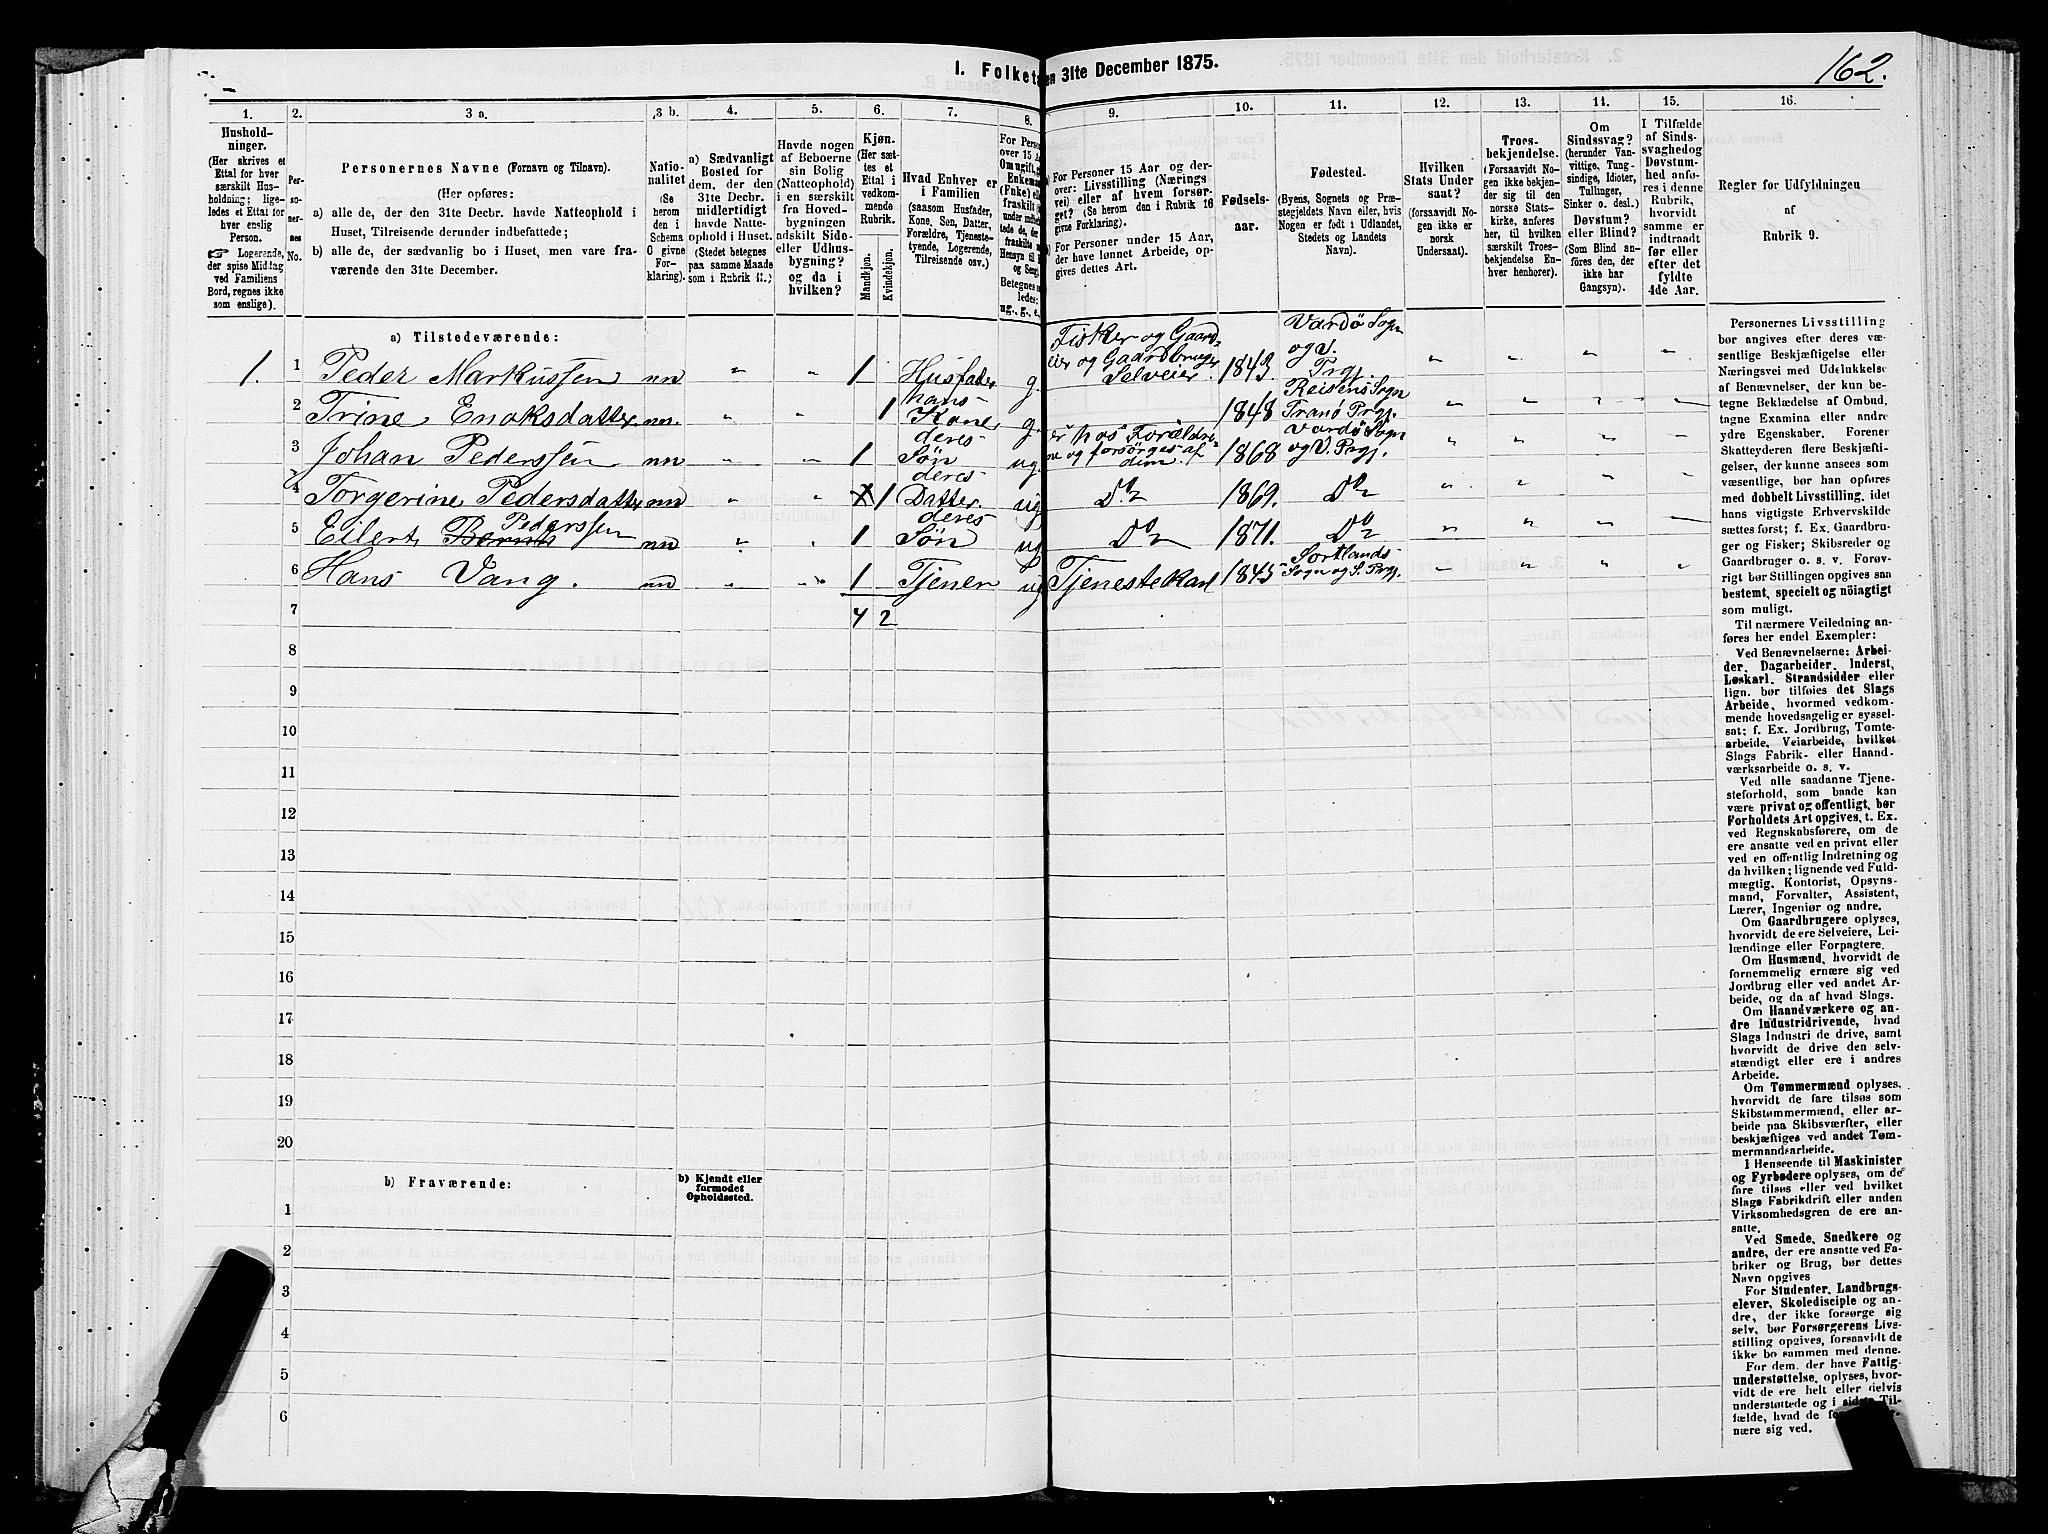 I. Folketæ
en 31te December 1875.
162.
1.
2.
3 a.
3 b.
4.
5.
6.
7.
8.
9.
10.
11.
12.
13.
14.
15.
16.
Hushold-
ninger.
(Her skrives et
Ettal for hver
særskilt Hus-
holdning; lige-
ledes et Ettal for
hver enslig
Person.
☞ Logerende,
der spise Middag
ved Familiens
Bord, regnes ikke
som enslige).
Per-
soner-
nes
No.
Personernes Navne (Fornavn og Tilnavn).
(Her opføres:
a) alle de, der den 31te Decbr. havde Natteophold i
Huset, Tilreisende derunder indbefattede;
b) alle de, der sædvanlig bo i Huset, men vare fra-
værende den 31te December.
Natio-
nalitet
(Se
herom
den i
Schema
O givne
For-
klaring).
a) Sædvanligt
Bosted for
dem, der den
31te Decbr.
midlertidigt
havde Natte-
ophold i Huset.
(Stedet betegnes
paa samme Maade
som i Rubrik 11.)
Havde nogen
af Beboerne
sin Bolig
(Natteophold)
i en særskilt
fra Hoved-
bygningen
adskilt Side-
eller Udhus-
bygning?
og da i
hvilken?
Kjøn.
(Her sæt-
tes et
Ettal i
vedkom-
mende
Rubrik.
Mandkjøn.
Kvindekjøn.
Hvad Enhver er
i Familien
(saasom Husfader,
Kone, Søn, Datter,
Forældre, Tjeneste-
tyende, Logerende,
Tilreisende osv.)
For Perso
over 15 A
Omugift, g
Enkema
(Fnke) e
fraskilt
under
tede de,
fraskilte
Hensyn til
og Seng
Betegnes s
ledes:
ug., g., e.,
a) For Personer 15 Aar og der-
over: Livsstilling (Nærings-
vei) eller af hvem forsør-
get? (Se herom den i Rubrik 16
givne Forklaring).
b) For Personer under 15 Aar,
der have lønnet Arbeide, op-
gives dettes Art.
Fødsels-
aar.
Fødested.
(Byens, Sognets og Præ-
stegjeldets Navn eller, hvis
Nogen er født i Udlandet,
Stedets og Landets
Navn).
Hvilken
Stats Under
saat?
(forsaavidt No-
gen ikke er
norsk
Undersaat).
Troes-
bekjendelse.
(Forsaavidt No-
gen ikke bekjen-
der sig til den
norske Stats-
kirke, anføres
her, til hvilken
særskilt Troes-
bekjendelse
Enhver henhører).
Om
Sindssvag?
(herunder Van-
vittige, Tung-
sindige, Idioter,
Tullinger,
Sinker o. desl.)
Døvstum?
eller Blind?
(Som Blind an-
føres den, der
ikke har
Gangsyn).
I Tilfælde
af Sinds-
svaghedog
Døvstum-
hed anfø-
res i denne
Rubrik,
hvorvidt
samme er
indtraadt
før eller
efter det
fyldte
4de Aar.
Regler for Udfyldningen
af
Rubrik 9.
a) Tilstedeværende:
1. 1 Peder Markussen nn " " 1 Husfader g. Fisker og Gaard-
eier og Gaardbruger
Selveier. 1843. Vardø Sogn
og V.
Prgj. " " " "
2 Trine Enoksdatter nn. " " 1 hans
Kone g. 1848 Reisens Sogn
Tranø Prgj. " " " "
3 Johan Pederssen nn " " 1 deres
Søn ug. er hos Forældre-
ne og forsørges af
dem. 1868 Vardø Sogn
og V. Prgj. " " " "
4 Torgerine Pedersdatter nn " " 1 deres
Datter. ug Do 1869. Do " " " "
5 Eilert Pederssen nn " " 1 deres
Søn ug Do 1871. Do " " " "
6 Hans Vang. nn " " 1 Tjener ug Tjenestekarl 1845 Sortlands-
Sogn og S. Prgj. " " " "
7 4 2
8
9
10
11
12
13
14
15
16
17
18
19
20
b) Fraværende:
b) Kjendt eller
formodet
Opholdssted.
1
2
3
4
5
6
Personernes Livsstilling
bør angives efter deres væ-
sentlige Beskjæftigelse eller
Næringsvei med Udelukkelse
af Benævnelser, der kun be-
tegne Beklædelse af Ombud,
tagne Examina eller andre
ydre Egenskaber. Forener
Skatteyderen flere Beskjæfti-
gelser, der kunne ansees som
væsentlige, bør han opføres
med dobbelt Livsstilling, idet
hans vigtigste Erhvervskilde
sættes først; f. Ex. Gaardbru-
ger og Fisker; Skibsreder og
Gaardbruger o. s. v. Forøv-
rigt bør Stillingen opgives saa
bestemt, specielt og nöiagtigt
som muligt.
Til nærmere Veiledning an-
føres her endel Exempler:
Ved Benævnelserne: Arbei-
der, Dagarbeider, Inderst,
Løskarl, Strandsidder eller
lign. bør tilføies det Slags
Arbeide, hvormed vedkom-
mende hovedsagelig er syssel-
sat; f. Ex. Jordbrug, Tomte-
arbeide, Veiarbeide, hvilket
Slags Fabrik- eller Haand-
værksarbeide o. s. v.
Ved alle saadanne Tjene-
steforhold, som baade kan
være privat og offentligt, bør
Forholdets Art opgives, t. Ex.
ved Regnskabsførere, om de
ere ansatte ved en privat eller
ved en offentlig Indretning og
da hvilken; lignende ved Fuld-
mægtig, Kontorist, Opsyns-
mand, Forvalter, Assistent,
Lærer, Ingeniør og andre.
Om Gaardbrugere oplyses,
hvorvidt de ere Selveiere, Lei-
lændinge eller Forpagtere.
Om Husmænd, hvorvidt de
fornemmelig ernære sig ved
Jordbrug eller ved andet Ar-
beide, og da af hvad Slags.
Om Haandværkere og an-
dre Industridrivende, hvad
Slags Industri de drive, samt
hvorvidt de drive den selv-
stændigt eller ere i andres
Arbeide.
Om Tømmermænd oplyses,
hvorvidt de fare tilsøs som
Skibstømmermænd, eller ar-
beide paa Skibsværfter, eller
beskjæftiges ved andet Tøm-
mermandsarbeide.
I Henseende til Maskinister
og Fyrbødere oplyses, om de
fare tilsøs eller ved hvilket
Slags Fabrikdrift eller anden
Virksomhedsgren de ere an-
satte.
Ved Smede, Snedkere og
andre, der ere ansatte ved Fa-
briker og Brug, bør dettes
Navn opgives
For Studenter, Landbrugs-
elever, Skoledisciple og an-
dre, der ikke forsørge sig
selv, bør Forsørgerens Livs-
stilling opgives, forsaavidt de
ikke bo sammen med denne.
For dem, der have Fattig-
understøttelse, oplyses, hvor-
vidt de ere helt eller delvis
understøttede og i sidste Til-
fælde, hvad de
nære sig ved.